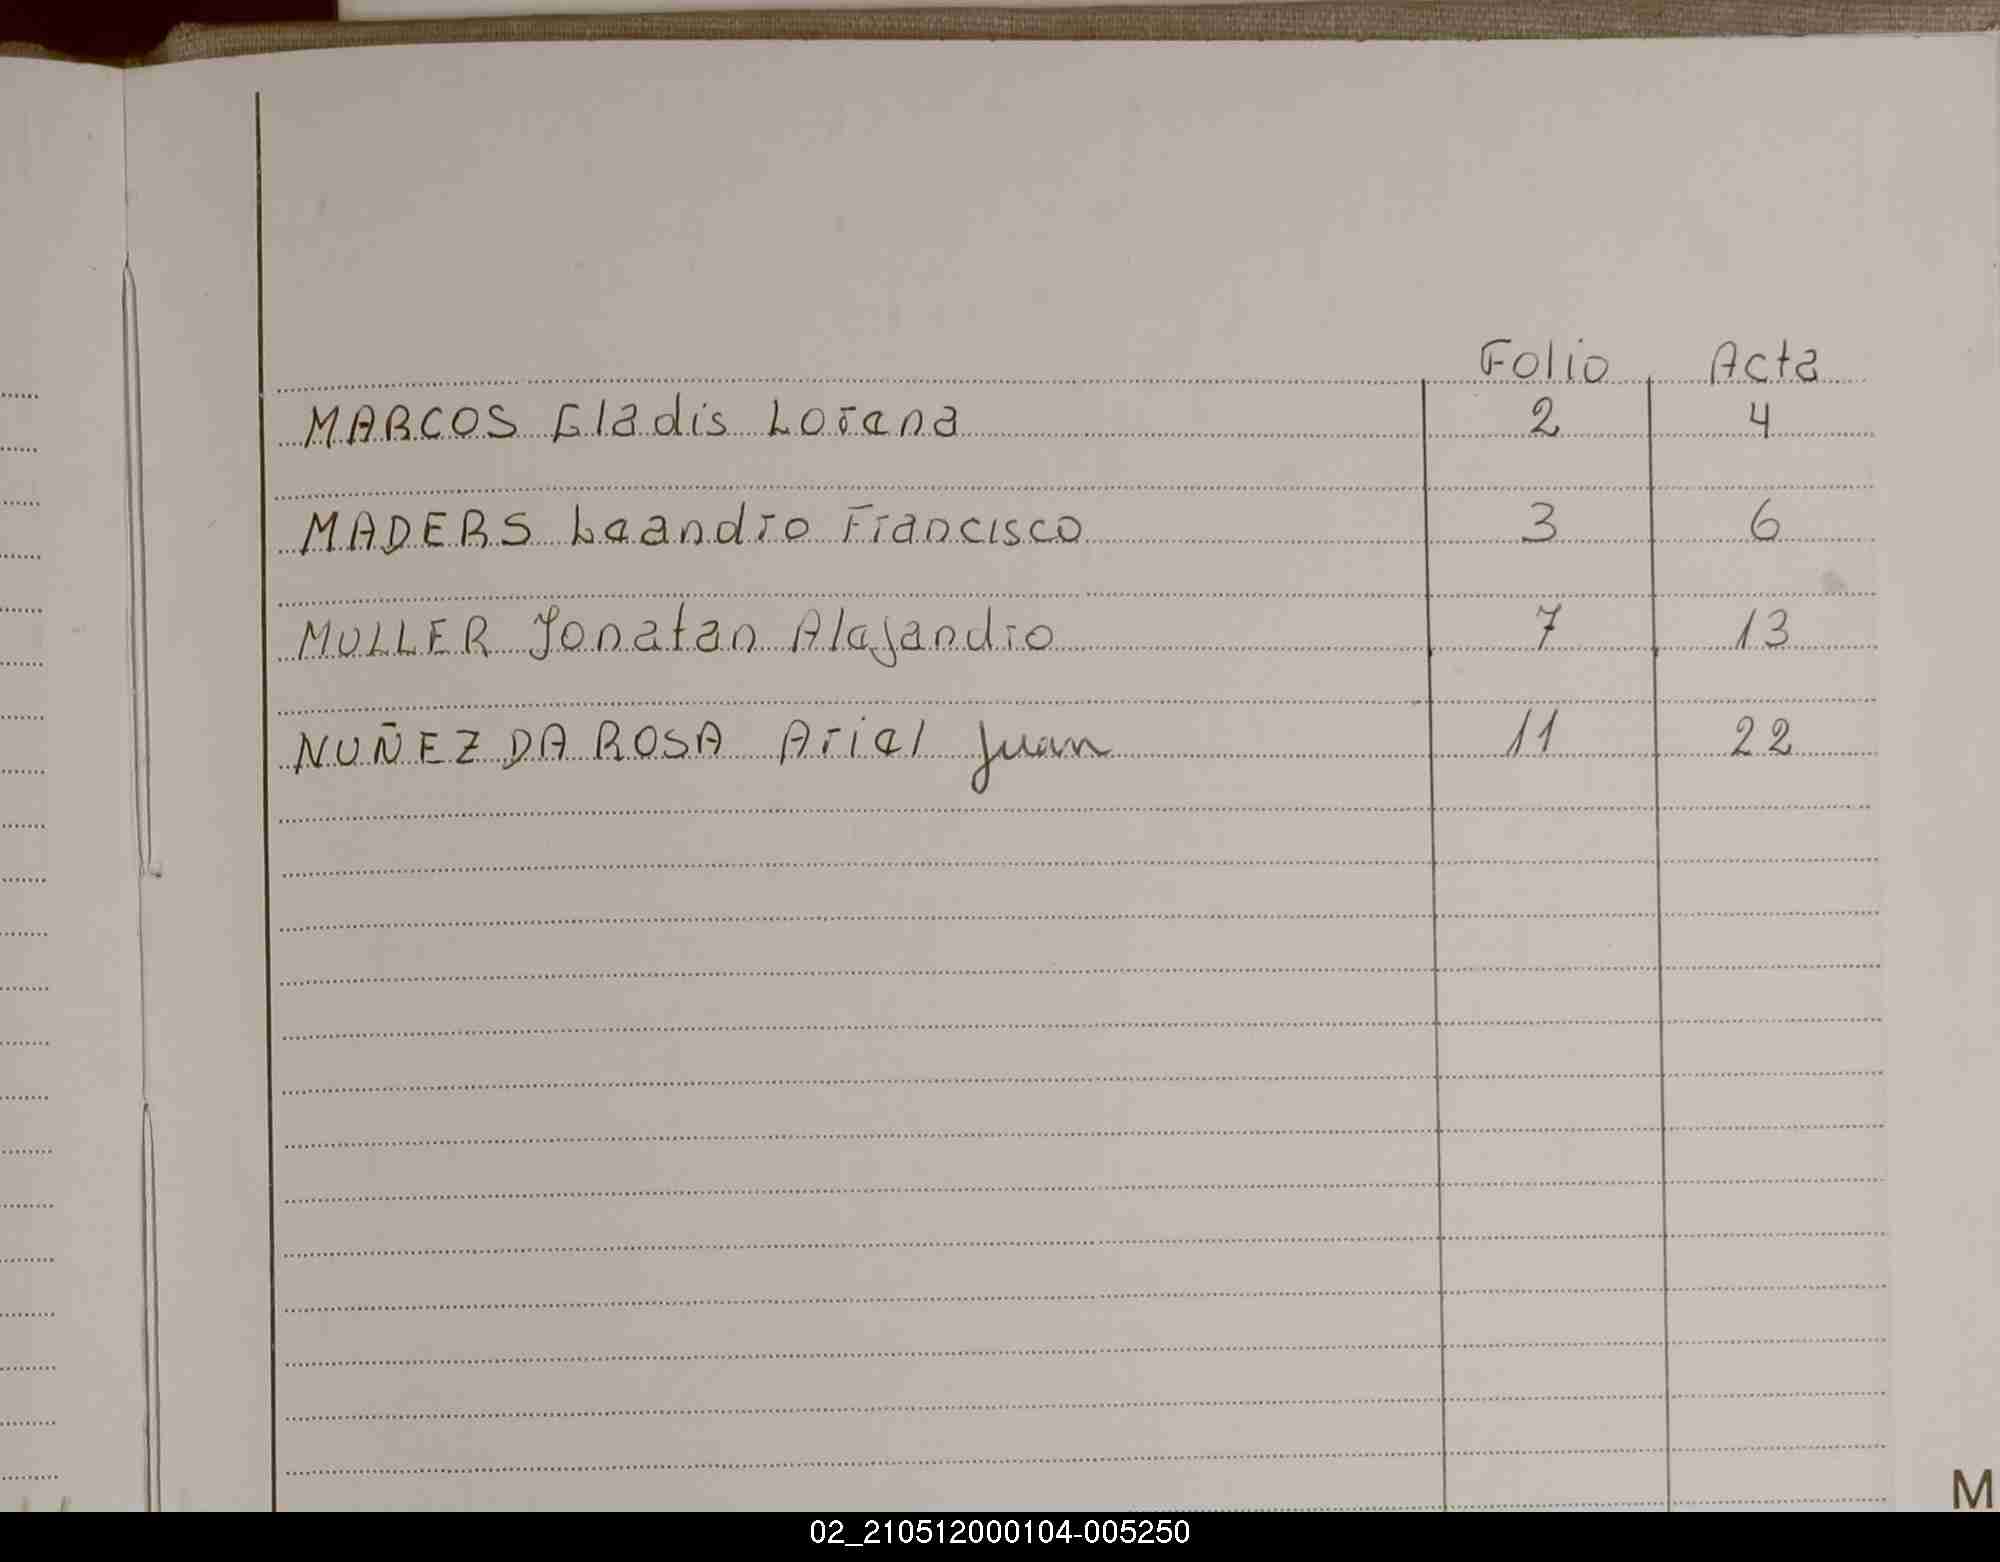 Folio Acta
MARCOS Gladis Lorena 2 4
MADERS Leandro Francisco 3 6
MULLER Jonatan Alejandro 7 13
NUÑEZ DA ROSA Ariel Juan 11 22
M
02_210512000104-005250